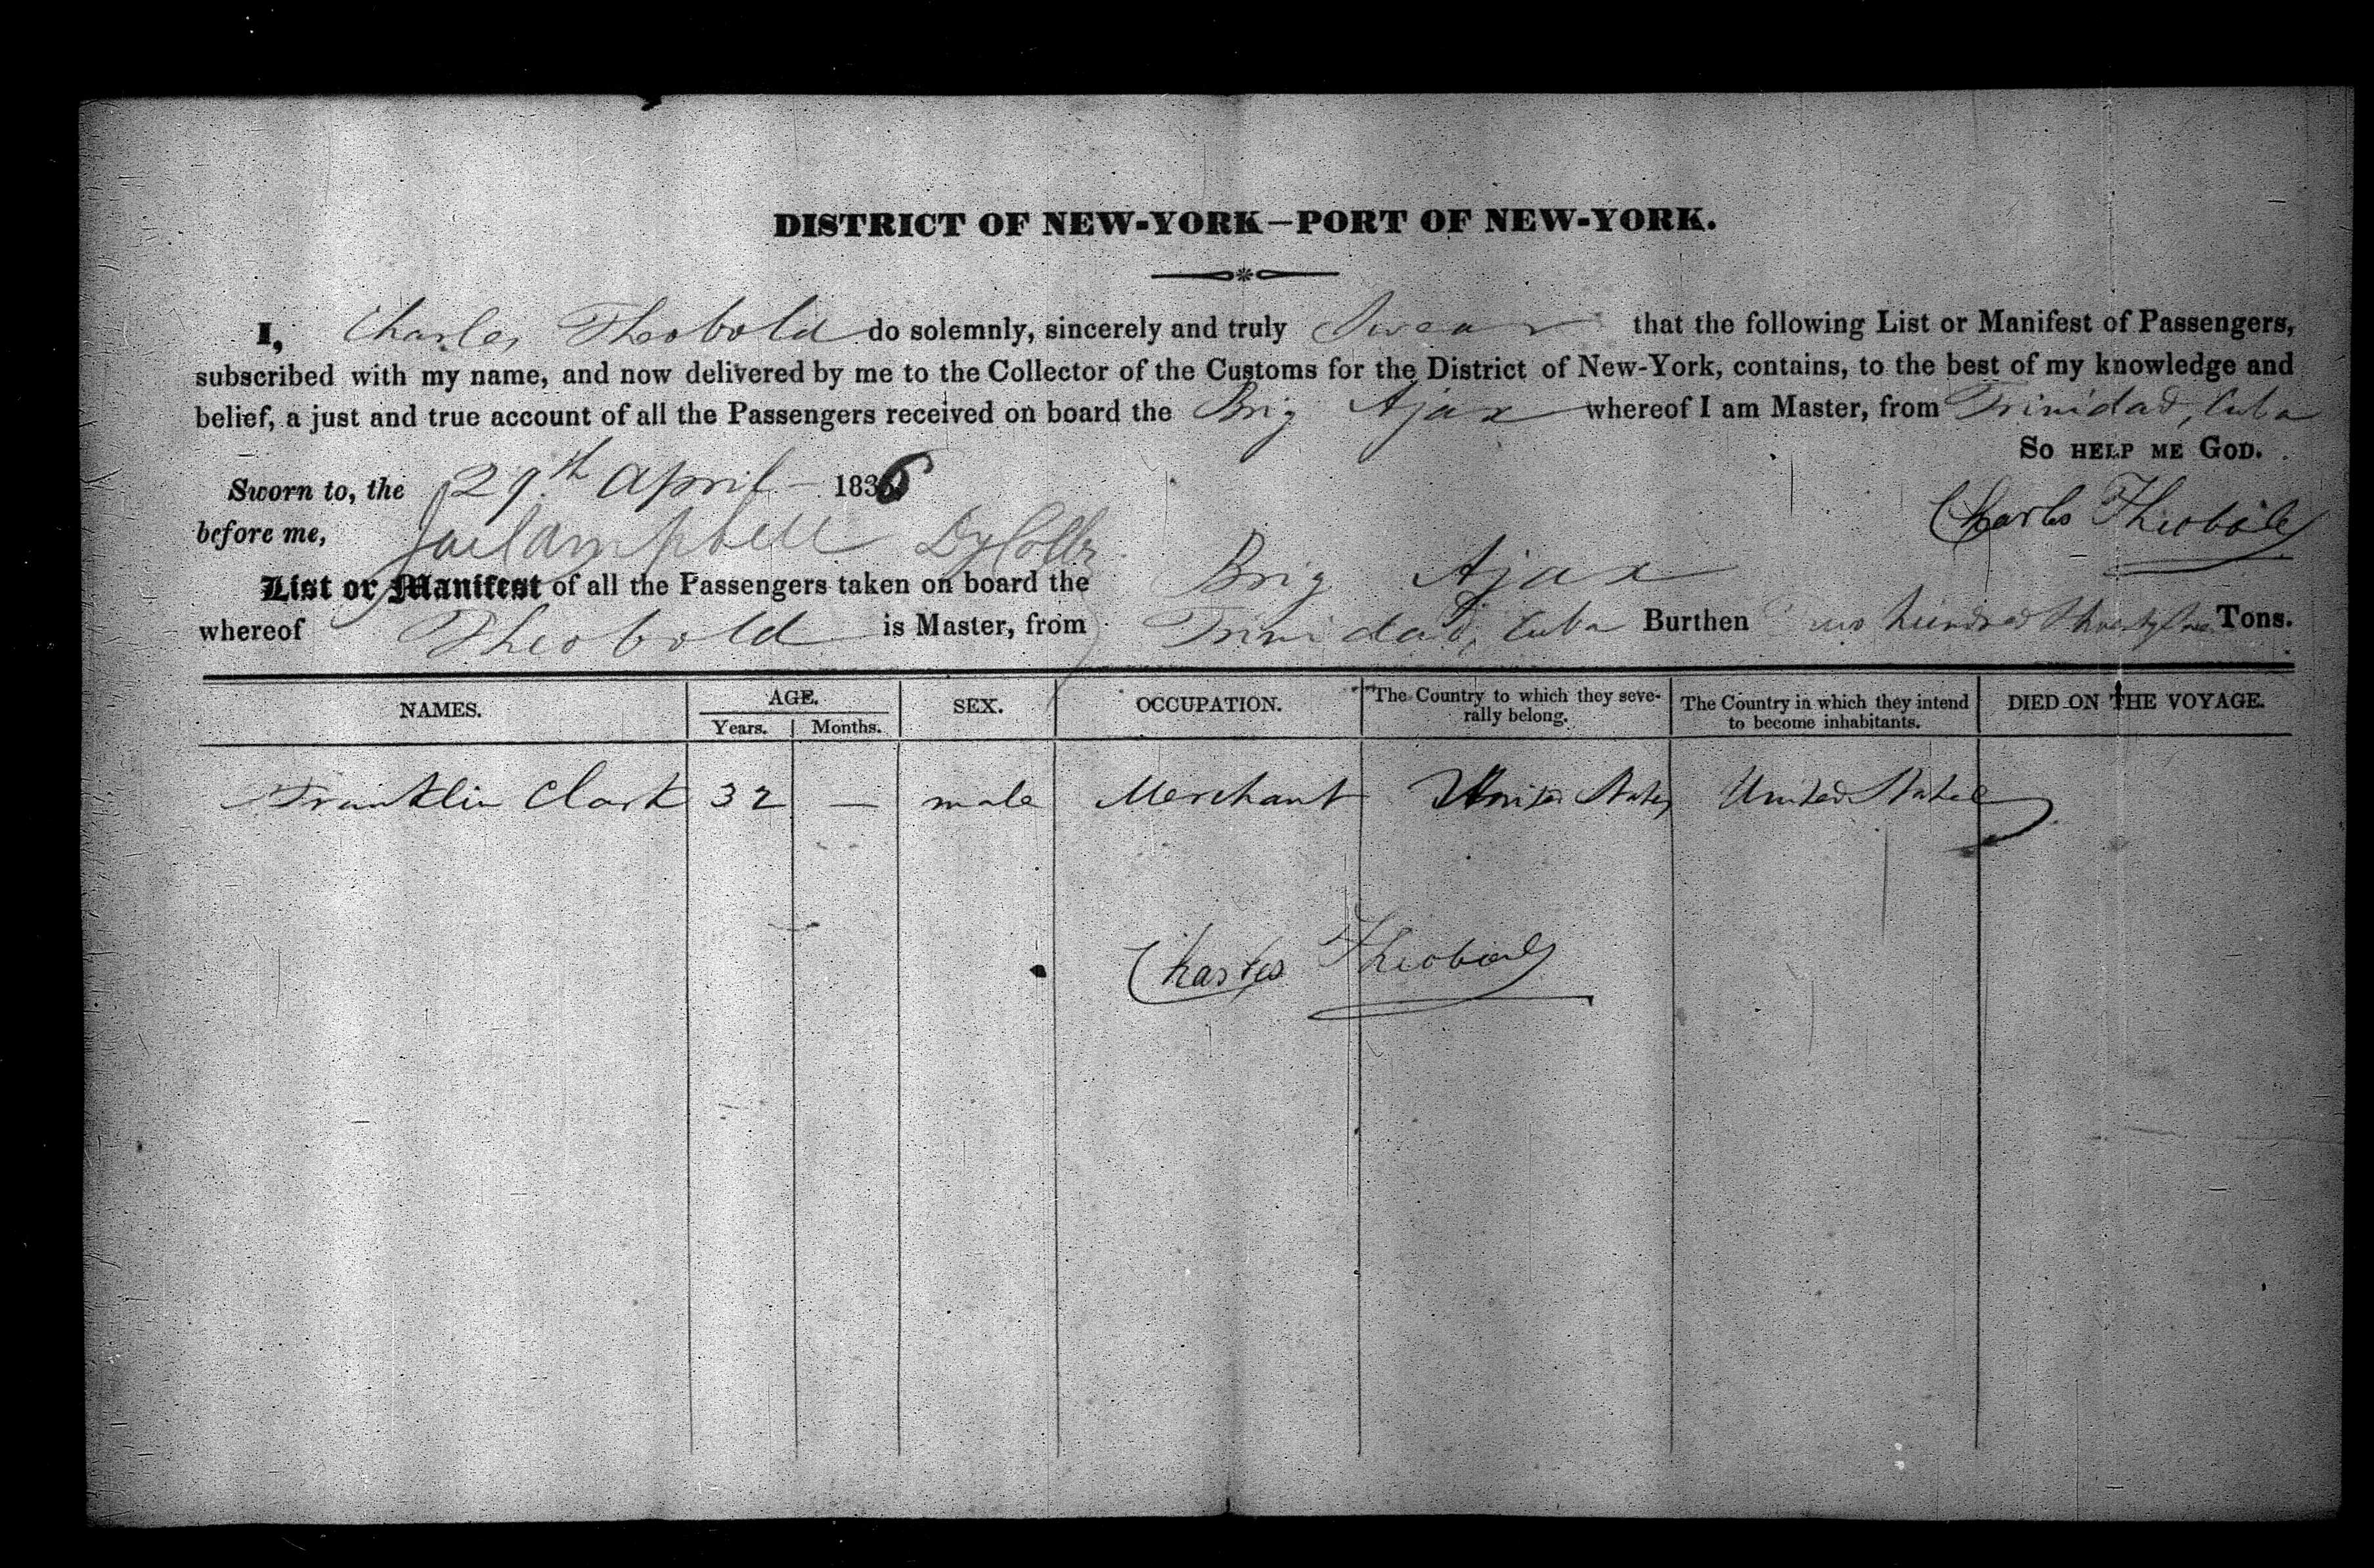 DISTRICT OF NEW-YORK—PORT OF NEW-YORK.
I, Charles Theobold do solemnly, sincerely and truly Swear that the following List or Manifest of Passengers,
subscribed with my name, and now delivered by me to the Collector of the Customs for the District of New-York, contains, to the best of my knowledge and
belief, a just and true account of all the Passengers received on board the Brig Ajax whereof I am Master, from Trinidad, Cuba
So HELP ME GOD.
Sworn to, the 29th April 1836
Charles Theobald
before me, Campbell Dy Collr
List or Manifest of all the Passengers taken on board the Brig Ajax
whereof Theobold is Master, from Trinidad, Cuba Burthen Two hundred Tons.
NAMES. AGE. Years. Months. SEX. OCCUPATION. The Country to which they severally belong. The Country in which they intend to become inhabitants. DIED ON THE VOYAGE.
Franklin Clark 32 — male Merchant United States United States
Charles Theobald